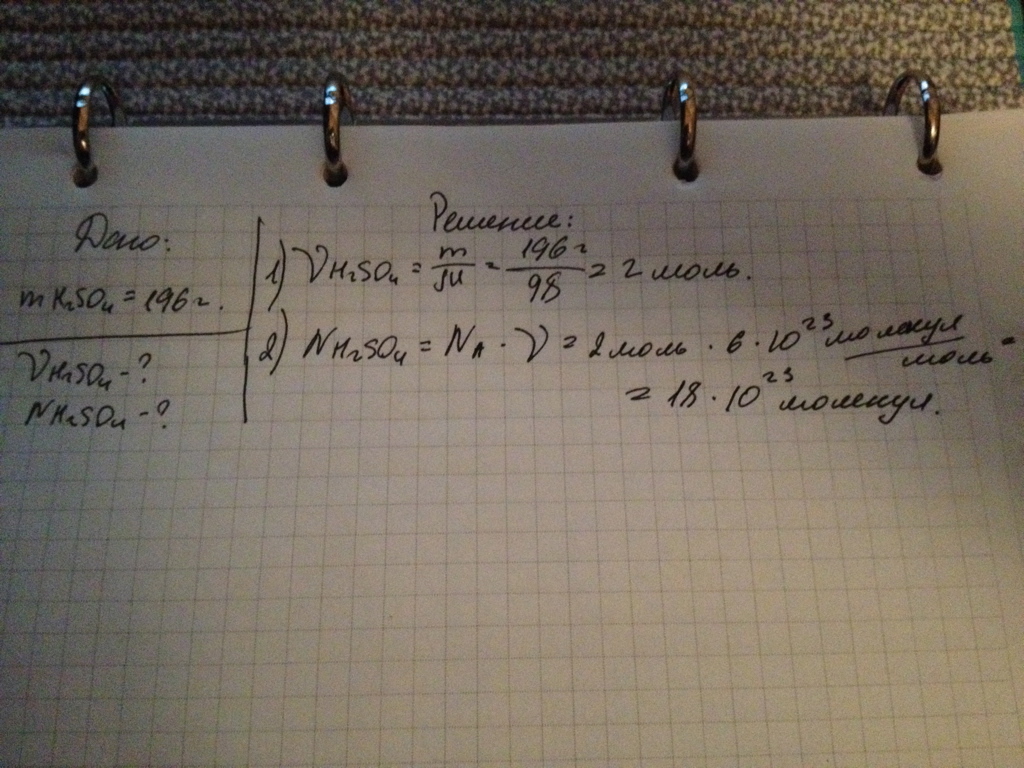 Дано:
m H₂SO₄ = 196 г.
ν H₂SO₄ - ?
N H₂SO₄ - ?
Решение:
1) ν H₂SO₄ = m/M = 196 г/98 = 2 моль.
2) N H₂SO₄ = Nₐ · ν = 2 моль · 6 · 10²³ молекул/моль =
= 18 · 10²³ молекул.